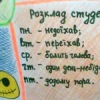 розклад студе
пн. - недоїхав;
вт. - переїхав;
ср. - болить голова;
чт. - один день-небіда
пт. - додому пора.